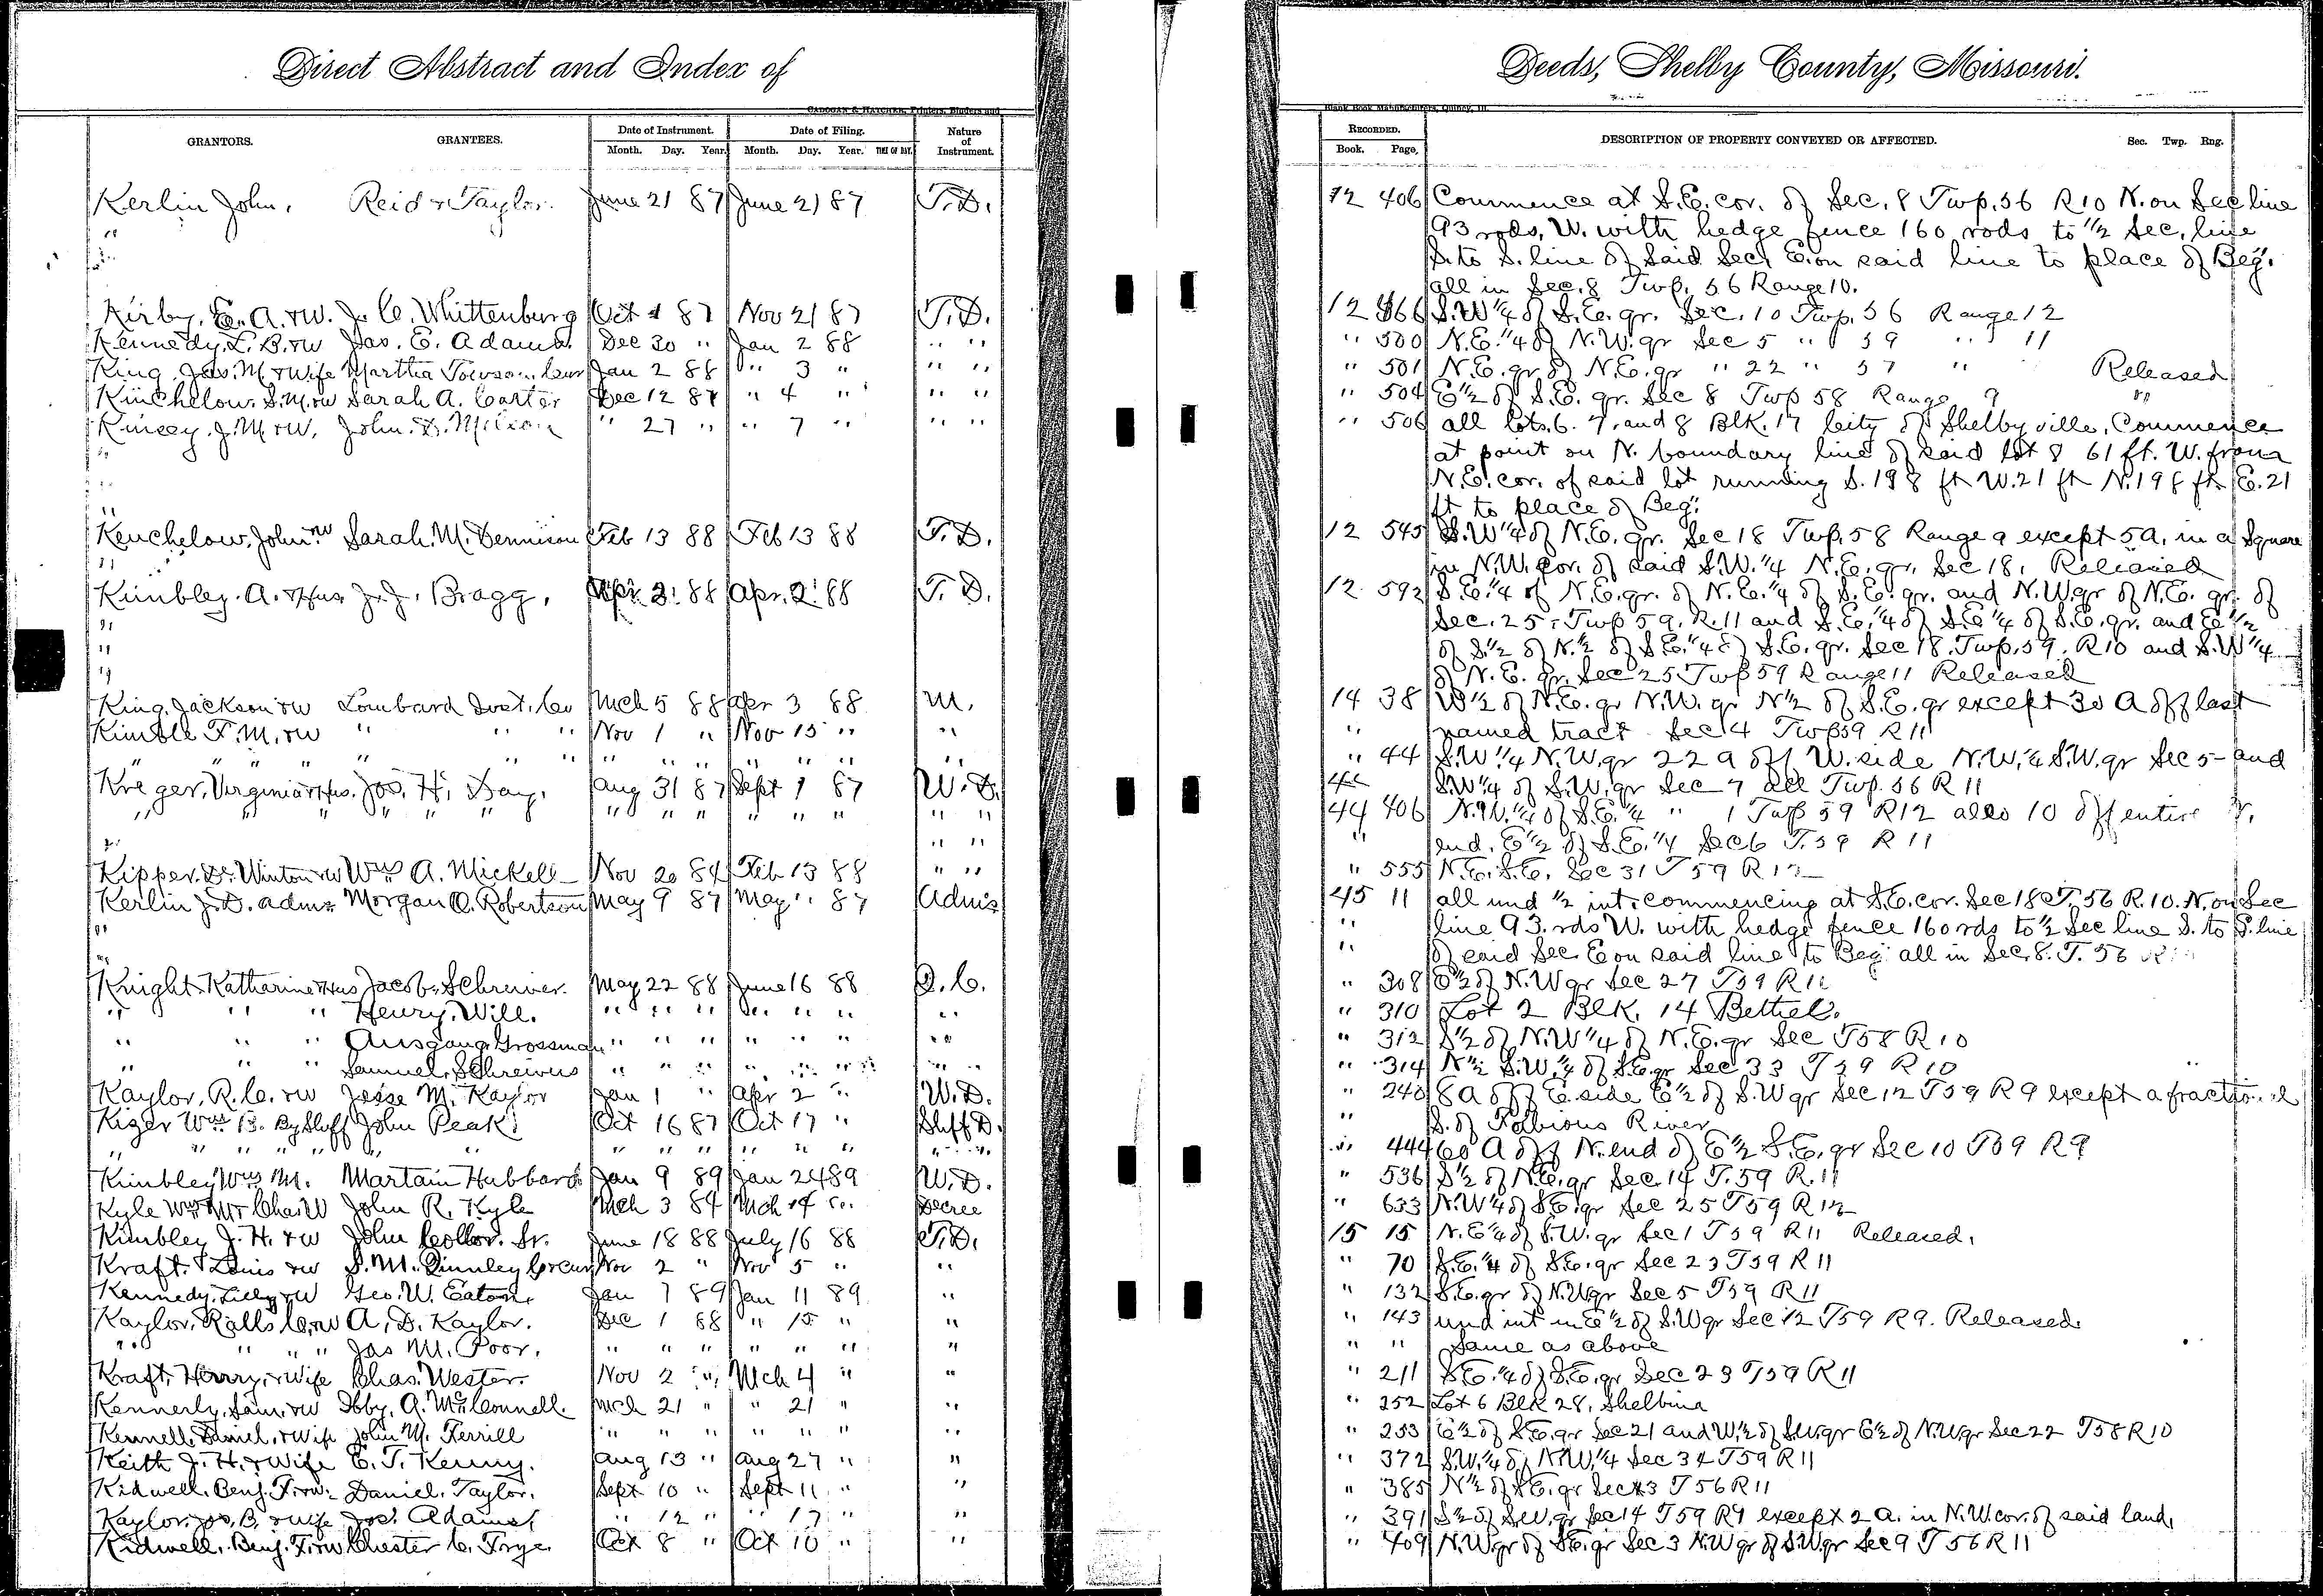 Direct Abstract and Index of
Deeds, Shelby County, Missouri.
CADOGAN & HATCHER, Printers, Binders and
Blank Book Manufacturers, Quincy, Ill.
GRANTORS. GRANTEES. Date of Instrument. Date of Filing. Nature of Instrument.
Month. Day. Year. Month. Day. Year. TIME OF DAY.
RECORDED. DESCRIPTION OF PROPERTY CONVEYED OR AFFECTED. Sec. Twp. Rng.
Book. Page,
Kerlin John, Reid & Taylor. June 21 87 June 21 87 T.D. 12 406 Commence at S.E. cor. of Sec. 8 Twp. 56 R 10 N. on Sec line
" 93 rods, W. with hedge fence 160 rods to 1/2 Sec, line
" S. to S. line of Said Sec, E. on said line to place of Beg.
all in Sec. 8 Twp. 56 Range 10.
Kirby, E. A. & W. J. C. Whittenburg Oct 1 87 Nov 21 87 T.D. 12 466 S.W 1/4 of S.E. qr. Sec. 10 Twp. 56 Range 12
Kennedy, L. B. & W Jas. E. Adams. Dec 30 " Jan 2 88 " " " 500 N.E. 1/4 of N.W. qr Sec 5 " 59 " 11
King, Jas. M. & Wife Martha Towson, Jan 2 88 " 3 " " " " 501 N.E. qr of N.E. qr " 22 " 57 " " Released
Kinchelow. S. M. & W Sarah A. Carter Dec 12 87 " 4 " " " " 504 E 1/2 of S.E. qr. Sec 8 Twp 58 Range 9 "
Kinsey. J. M & W. John. D. " 27 " " 7 " " " " 506 all lots. 6. 7. and 8 Blk. 17 City of Shelbyville, Commence
" at point on N. boundary line of said lot 8 61 ft. W. from
N.E. cor. of said lot running S. 198 ft W. 21 ft N. 198 ft E. 21
" ft to place of Beg.
Kenchelow, John & W Sarah. M. Dennison Feb 13 88 Feb 13 88 T.D. 12 545 S.W 1/4 of N.E. qr. Sec 18 Twp. 58 Range 9 except 5 a, in a Square
" in N.W. cor. of said S.W. 1/4 N.E. qr. Sec 18. Released
Kimbley. A. & Hus. J. J. Bragg. Apr. 2 88 Apr. 2 88 T.D. 12 592 S.E. 1/4 of N.E. qr. of N.E. 1/4 of S.E. qr. and N.W. qr of N.E. qr. of
" Sec. 25, Twp 59, R. 11 and S.E. 1/4 of S.E 1/4 of S.E. qr. and E 1/2
" of S. 1/2 of N. 1/2 of S.E. 1/4 of S.E. qr. Sec 18. Twp. 59. R 10 and S.W 1/4
" of N.E. qr. Sec 25 Twp 59 Range 11 Released
King, Jackson & W Lombard Invt. Co Mch 5 88 Apr 3 88 M. 14 38 W 1/2 of N.E. qr N.W. qr N 1/2 of S.E. qr except 30 A off last
Kimble F. M. & W " " " Nov 1 " Nov 15 " " " named tract Sec 4 Twp 59 R 11
" " " " " " " " " " " " " " " 44 S.W. 1/4 N.W. qr 22 a off W. side N.W. 1/4 S.W. qr Sec 5 and
Kreger, Virginia & Hus. Jos. H. Day. Aug 31 87 Sept 1 87 W.D. S.W 1/4 of S.W. qr Sec 7 all Twp. 56 R 11
" " " " " " " " " " " " " " 44 406 N.W. 1/4 of S.E. 1/4 " 1 Twp 59 R 12 also 10 off entire
" " " " end. E 1/2 of S.E. 1/4 Sec 6 T. 59 R 11
Kipper, De Winton & W Wm A. Mickell Nov 20 84 Feb 13 88 " " " 555 N.E. S.E. Sec 31 T 59 R 12
Kerlin J. D. adms Morgan O. Robertson May 9 87 May " 87 Adms 45 11 all und 1/2 int. commencing at S.E. cor. Sec 18 T. 56 R. 10. N. on Sec
" " line 93. rds W. with hedge fence 160 rds to 1/2 Sec line S. to S. line
" " of said Sec. E on said line to Beg all in Sec. 8. T. 56
Knight Katharine & Hus Jacob Schreiver. May 22 88 June 16 88 Q.C. " 308 E 1/2 of N.W qr Sec 27 T 59 R 11
" " " Henry, Will. " " " " " " " " 310 Lot 2 Blk. 14 Bethel.
" " " Ausgang Grossman " " " " " " " " 312 S 1/2 of N.W 1/4 of N.E. qr Sec T 58 R 10
" " " Samuel, Schreivers " " " " " " " " 314 N 1/2 S.W. 1/4 of S.E. qr Sec 33 T 59 R 10
Kaylor, R. C. & W Jesse M. Kaylor Jan 1 " Apr 2 " W.D. " 240 8 a off E. side E 1/2 of S.W qr Sec 12 T 59 R 9 except a fractional
Kizer Wm B. By Shff John Peak Oct 16 87 Oct 17 " Shff D. " S. of Fabious River
" " " " " " " " " " " " 444 60 A off N. end of E 1/2 S.E. qr Sec 10 T 59 R 9
Kimbley Wm M. Martain Hubbard Jan 9 89 Jan 24 89 W.D. " 536 S 1/2 of N.E. qr Sec. 14 T. 59 R. 11
Kyle Wm M & Chas W John R. Kyle Mch 3 84 Mch 14 " Decree " 633 N.W 1/4 of S.E. qr Sec 25 T 59 R 12
Kimbley J. H. & W John Collor. Sr. June 18 88 July 16 88 T.D. 15 15 N.E 1/4 of S.W. qr Sec 1 T 59 R 11 Released.
Kraft. Louis & W S. M. Quinley Nov 2 " Nov 5 " " " 70 S.E. 1/4 of S.E. qr Sec 23 T 59 R 11
Kennedy, Lilly & W Geo. W. Eaton. Jan 7 89 Jan 11 89 " " 132 S.E. qr of N.W qr Sec 5 T 59 R 11
Kaylor, Ralls C. & W A. D. Kaylor. Dec 1 88 " 15 " " " 143 und int in E 1/2 of S.W qr Sec 12 T 59 R 9. Released.
" " " " Jas M. Poor. " " " " " " " " " Same as above
Kraft, Harry, & Wife Chas. Wester. Nov 2 " Mch 4 " " " 211 S.E. 1/4 of S.E. qr Sec 23 T 59 R 11
Kennerly, Sam, & W Ibby, A. McConnell. Mch 21 " " 21 " " " 252 Lot 6 Blk 28, Shelbina
Kennell, Daniel, & Wife John M. Terrill " " " " " " " " 253 E 1/2 of S.E. qr Sec 21 and W. 1/2 of S.W. qr E 1/2 of N.W qr Sec 22 T 58 R 10
Keith J. H. & Wife E. T. Kenny. Aug 13 " Aug 27 " " " 372 S.W. 1/4 of N.W. 1/4 Sec 34 T 59 R 11
Kidwell, Benj. F. & W. Daniel. Taylor. Sept 10 " Sept 11 " " " 385 N 1/2 of S.E. qr Sec 3 T 56 R 11
Kaylor, Jos, B. & Wife Jos. Adams, " 12 " " 17 " " " 391 S 1/2 of S.W. qr Sec 14 T 59 R 9 except 2 a. in N.W. cor. of said land,
Kidwell, Benj. F. & W Chester C. Frye. Oct 8 " Oct 10 " " " 409 N.W. qr of S.E. qr Sec 3 N.W qr of S.W qr Sec 9 T 56 R 11